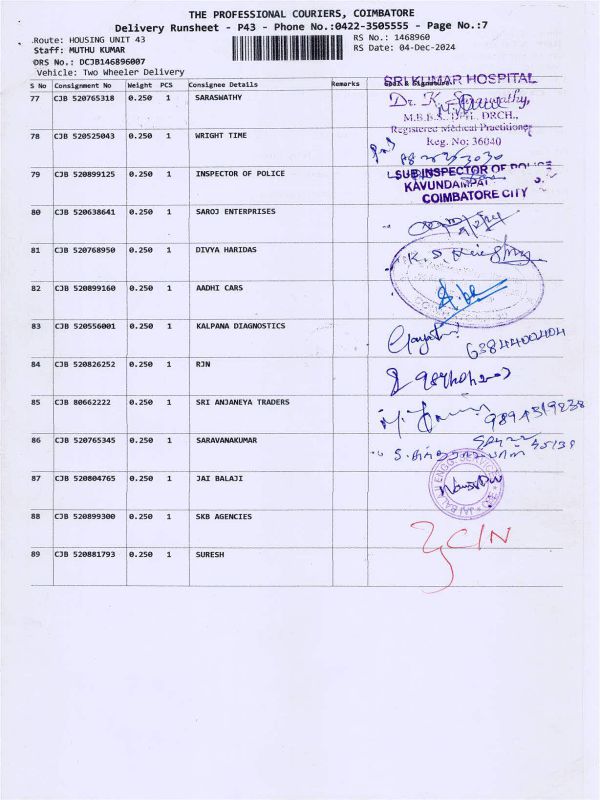 THE PROFESSIONAL COURIERS, COIMBATORE
Delivery Runsheet - P43 - Phone No.:0422-3505555 - Page No.:7
Route: HOUSING UNIT 43
RS No.: 1468960
Staff: MUTHU KUMAR
RS Date: 04-Dec-2024
DRS No.: DCJB146896007
Vehicle: Two Wheeler Delivery
S No Consignment No Weight PCS Consignee Details Remarks
SRI KUMAR HOSPITAL
77 CJB 520765318 0.250 1 SARASWATHY
Dr. K. Saraswathy,
M.B.B.S., D.G.O., DRCH.,
Registered Medical Practitioner
78 CJB 520525043 0.250 1 WRIGHT TIME
Reg. No: 36040
79 CJB 520899125 0.250 1 INSPECTOR OF POLICE
SUB INSPECTOR OF POLICE
KAVUNDAMPALAYAM
COIMBATORE CITY
80 CJB 520638641 0.250 1 SAROJ ENTERPRISES
81 CJB 520768950 0.250 1 DIVYA HARIDAS
82 CJB 520899160 0.250 1 AADHI CARS
83 CJB 520556001 0.250 1 KALPANA DIAGNOSTICS
Gayathri
6384400404
84 CJB 520826252 0.250 1 RJN
85 CJB 80662222 0.250 1 SRI ANJANEYA TRADERS
9894519238
86 CJB 520765345 0.250 1 SARAVANAKUMAR
87 CJB 520804765 0.250 1 JAI BALAJI
88 CJB 520899300 0.250 1 SKB AGENCIES
89 CJB 520881793 0.250 1 SURESH